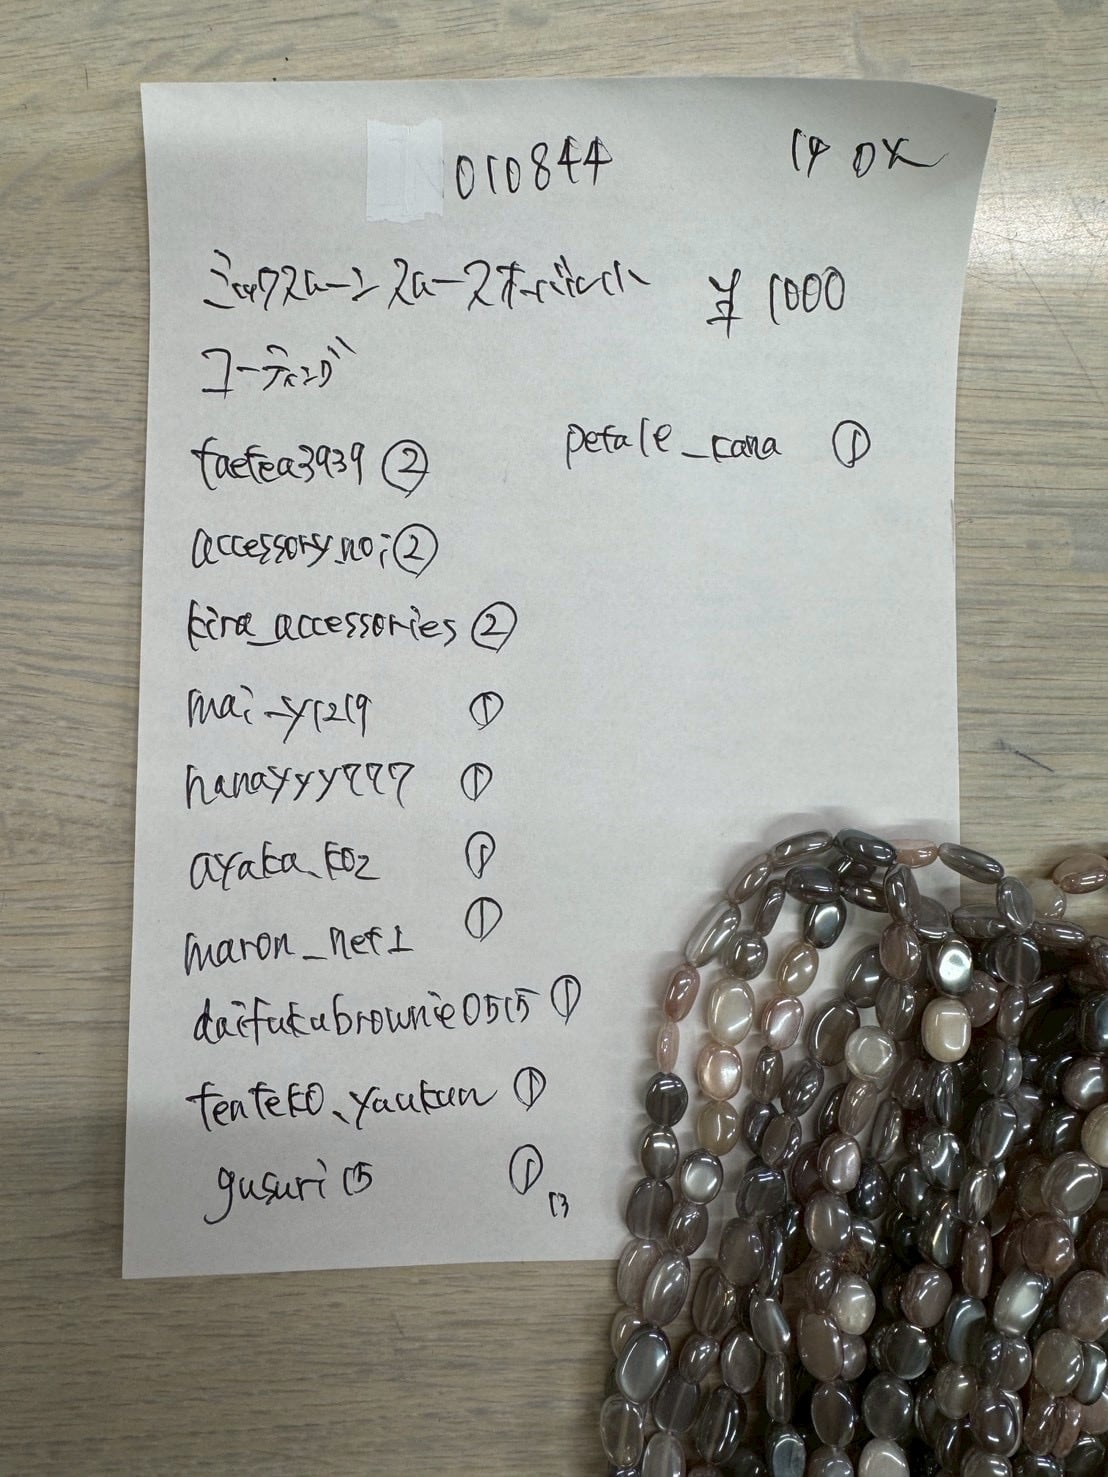 010844
14 0X
ミックスムーンスムースオーバル小 ¥1000
コーティング
taetea3939 ②
petale_kana ①
accessory_noi ②
kira_accessories ②
mai_y1219 ①
hanayyy777 ①
ayaka.k02 ①
maron_net1 ①
daifukubrownie0515 ①
tenteko.yaukun ①
gusuri15 ①
13